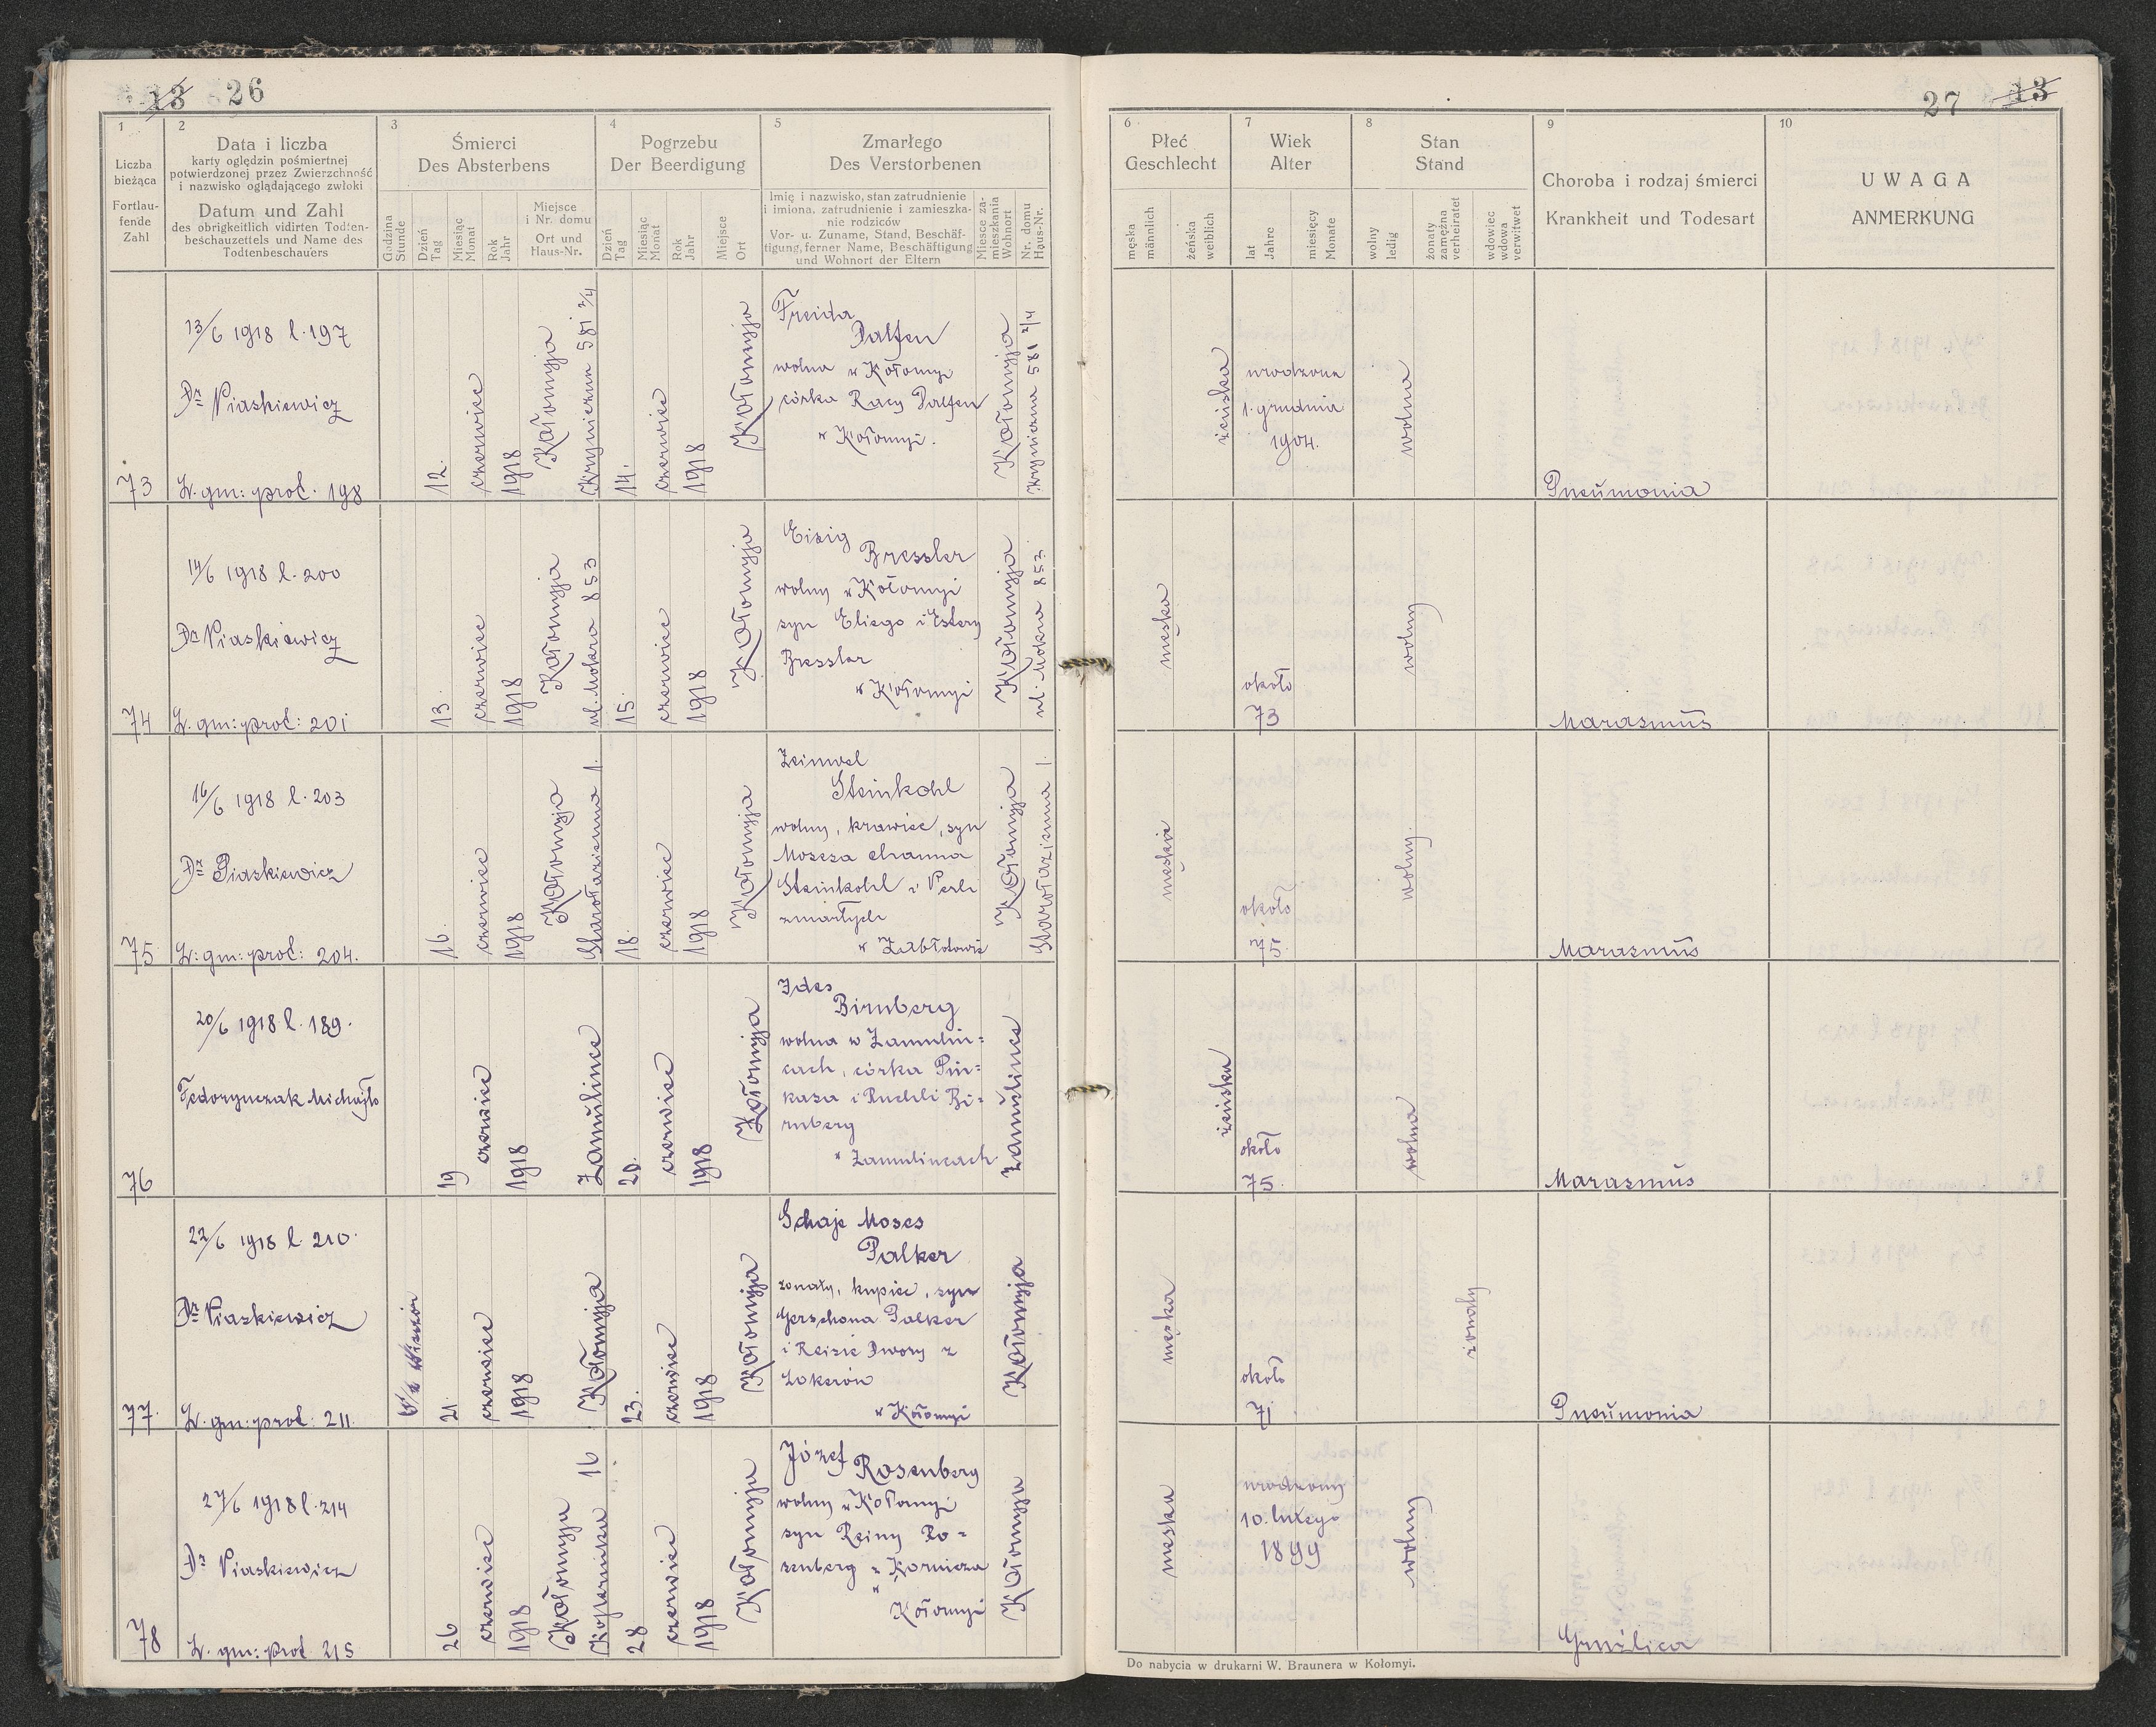 13 26
27 13
1
Liczba
bieżąca
Fortlau-
fende
Zahl
2
Data i liczba
karty oględzin pośmiertnej
potwierdzonej przez Zwierzchność
i nazwisko oglądającego zwłoki
Datum und Zahl
des obrigkeitlich vidirten Todten-
beschauzettels und Name des
Todtenbeschauers
3
Śmierci
Des Absterbens
Godzina
Stunde
Dzień
Tag
Miesiąc
Monat
Rok
Jahr
Miejsce
i Nr. domu
Ort und
Haus-Nr.
4
Pogrzebu
Der Beerdigung
Dzień
Tag
Miesiąc
Monat
Rok
Jahr
Miejsce
Ort
5
Zmarłego
Des Verstorbenen
Imię i nazwisko, stan zatrudnienie
i imiona, zatrudnienie i zamieszka-
nie rodziców
Vor- u. Zuname, Stand, Beschäf-
tigung, ferner Name, Beschäftigung
und Wohnort der Eltern
Miesce za-
mieszkania
Wohnort
Nr. domu
Haus-Nr.
6
Płeć
Geschlecht
męska
männlich
żeńska
weiblich
7
Wiek
Alter
lat
Jahre
miesięcy
Monate
8
Stan
Stand
wolny
ledig
żonaty
zamężna
verheiratet
wdowiec
wdowa
verwitwet
9
Choroba i rodzaj śmierci
Krankheit und Todesart
10
UWAGA
ANMERKUNG
73
13/6 1918 l. 197
Dr Piaskiewicz
L. gm: prot. 198
12.
czerwiec
1918
Kołomyja
Krynicznа 581 2/4
14.
czerwiec
1918
Kołomyja
Freida
Palfen
wolna w Kołomyi
córka Racy Palfen
w Kołomyi.
Kołomyja
581 2/4
żeńska
urodzona
1. grudnia
1904.
wolna
Pneumonia
74
14/6 1918 l. 200
Dr Piaskiewicz
L. gm: prot: 201
13.
czerwiec
1918
Kołomyja
ul. Mokra 853
15.
czerwiec
1918
Kołomyja
Eisig
Bressler
wolny w Kołomyi
syn Eliego i Estery
Bressler
w Kołomyi
Kołomyja
ul. Mokra 853.
męska
około
73
wolny
Marasmus
75
16/6 1918 l. 203
Dr Piaskiewicz
L: gm: prot: 204.
16.
czerwiec
1918
Kołomyja
Starołazienna 1.
18.
czerwiec
1918
Kołomyja
Zeimwel
Steinkohl
wolny, krawiec, syn
Mosesa Chaima
Steinkohl i Perli
zmarłych
w Zabłotowie
Kołomyja
Starołazienna 1.
męska
około
75.
wolny.
Marasmus
76
20/6 1918 l. 189.
Fedorynczak Michajło
19
czerwiec
1918
Zamulince
20.
czerwiec
1918
Kołomyja
Ides
Birnberg
wolna w Zamulin=
cach, córka Pin=
kasa i Ruchli Bi=
rnberg
w Zamulincach
Zamulince
żeńska
około
75.
wolna
Marasmus
77.
22/6 1918 l. 210.
Dr Piaskiewicz
L. gm: prot: 211.
21.
czerwiec
1918
Kołomyja
23.
czerwiec
1918
Kołomyja
Schaje Moses
Palker
żonaty, kupiec, syn
Gerschona Palker
i Reisie Dwory z
Lokerów
w Kołomyi
Kołomyja
męska
około
71
żonaty
Pneumonia
78
27/6 1918 l. 214
Dr Piaskiewicz
L. gm: prot. 215
26
czerwiec
1918
Kołomyja
Kopernika 16
28
czerwiec
1918
Kołomyja
Józef
Rosenberg
wolny w Kołomyi
syn Reiny Ro=
senberg z Kornicza
w
Kołomyi
Kołomyja
męska
urodzony
10. lutego
1899
wolny
Gruźlica
Do nabycia w drukarni W. Braunera w Kołomyi.